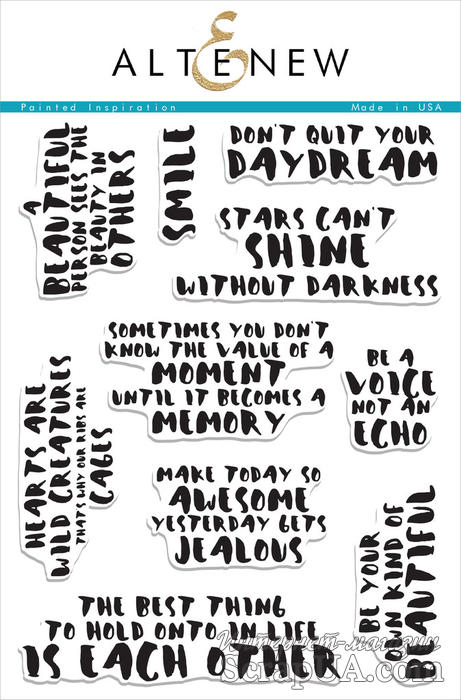 ALTENEW
Painted Inspiration
Made in USA
A
BEAUTIFUL
PERSON SEES THE
BEAUTY IN
OTHERS
SMILE
DON'T QUIT YOUR
DAYDREAM
STARS CAN'T
SHINE
WITHOUT DARKNESS
SOMETIMES YOU DON'T
KNOW THE VALUE OF A
MOMENT
UNTIL IT BECOMES A
MEMORY
BE A
VOICE
NOT AN
ECHO
HEARTS ARE
WILD CREATURES
THAT'S WHY OUR RIBS ARE
CAGES
MAKE TODAY SO
AWESOME
YESTERDAY GETS
JEALOUS
BE YOUR
OWN KIND OF
BEAUTIFUL
THE BEST THING
TO HOLD ONTO IN LIFE
IS EACH OTHER
Интернет-магазин
ScrapUA.com